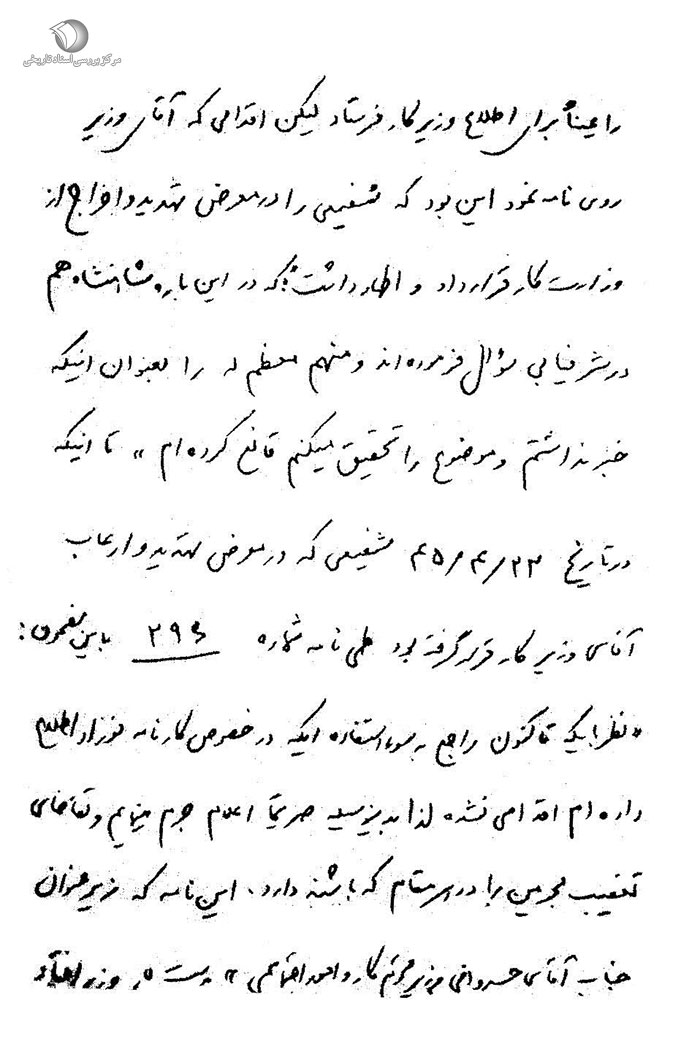 مرکز بررسی اسناد تاریخی
را عیناً برای اطلاع وزیر کار فرستاد لیکن اقدامی که آقای وزیر
روی نامه نمود این بود که شفیعی را در معرض تهدید و اخراج از
وزارت کار قرار داد و اظهار داشت: که در این باره شاهنشاه هم
در شرفیابی سؤال فرموده‌اند و منهم معظم له را بعنوان اینکه
خبر نداشتم و موضوع را تحقیق میکنم قانع کرده‌ام » تا اینکه
در تاریخ ۴۵/۴/۲۳ شفیعی که در معرض تهدید و ارعاب
آقای وزیر کار قرار گرفته بود طی نامه شماره ۲۹۶ باین مضمون:
« نظر باینکه تاکنون راجع به سوء استفاده ایکه در خصوص کارنامه نوزاد اطلاع
داده‌ام اقدامی نشده لذا بدینوسیله صریحاً اعلام جرم مینمایم و تقاضای
تعقیب مجرمین را در هر مقام که باشند دارد. این نامه که زیر عنوان
جناب آقای خسروانی وزیر محترم کار و امور اجتماعی » بدست